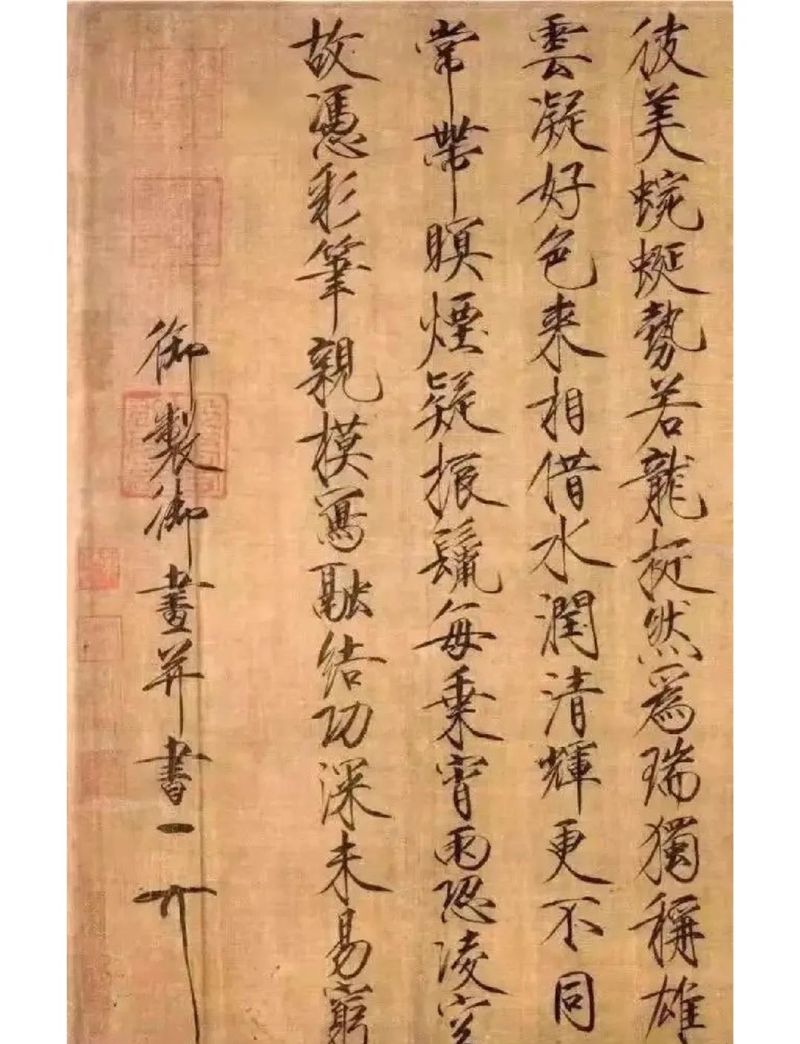 彼美蜿蜒勢若龍挺然爲瑞獨稱雄
雲凝好色來相借水潤清輝更不同
常帶暝煙疑振鬣每乘宵雨恐淩空
故憑彩筆親模寫融結功深未易窮
御製御畫并書